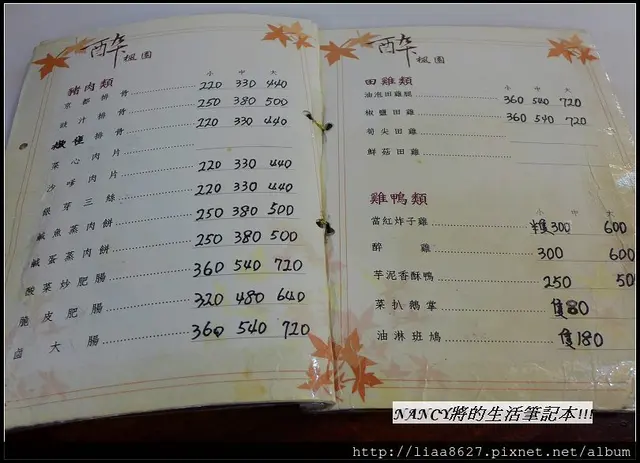 醉楓園
豬肉類 小 中 大
京都排骨 220 330 440
豉汁排骨 250 380 500
排骨 220 330 440
菜心肉片
沙嗲肉片 220 330 440
銀芽三絲 220 330 440
鹹魚蒸肉餅 250 380 500
鹹蛋蒸肉餅 250 380 500
酸菜炒肥腸 360 540 720
脆皮肥腸 320 480 640
鹵大腸 360 540 720
醉楓園
田雞類 小 中 大
油泡田雞腿 360 540 720
椒鹽田雞 360 540 720
筍尖田雞
鮮菇田雞
雞鴨類 小 中 大
當紅炸子雞 半隻300 600
醉雞 300 600
芋泥香酥鴨 250 50
菜扒鵝掌 隻80
油淋班鳩 隻180
NANCY將的生活筆記本!!!
http://liaa8627.pixnet.net/album